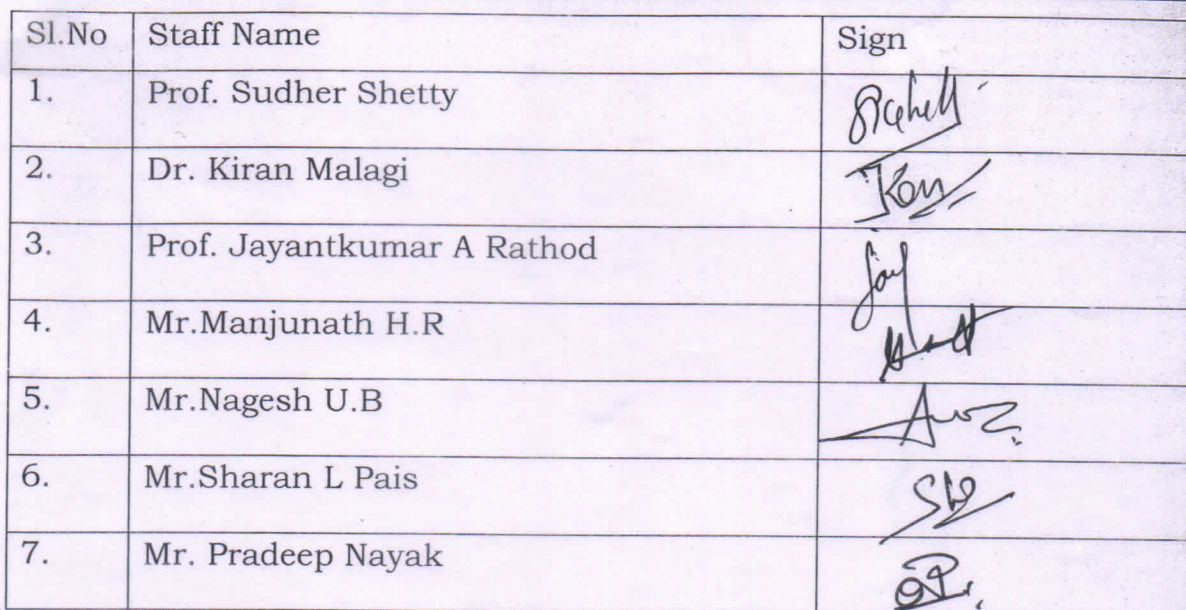 Sl.No Staff Name Sign
1. Prof. Sudher Shetty
2. Dr. Kiran Malagi
3. Prof. Jayantkumar A Rathod
4. Mr.Manjunath H.R
5. Mr.Nagesh U.B
6. Mr.Sharan L Pais
7. Mr. Pradeep Nayak